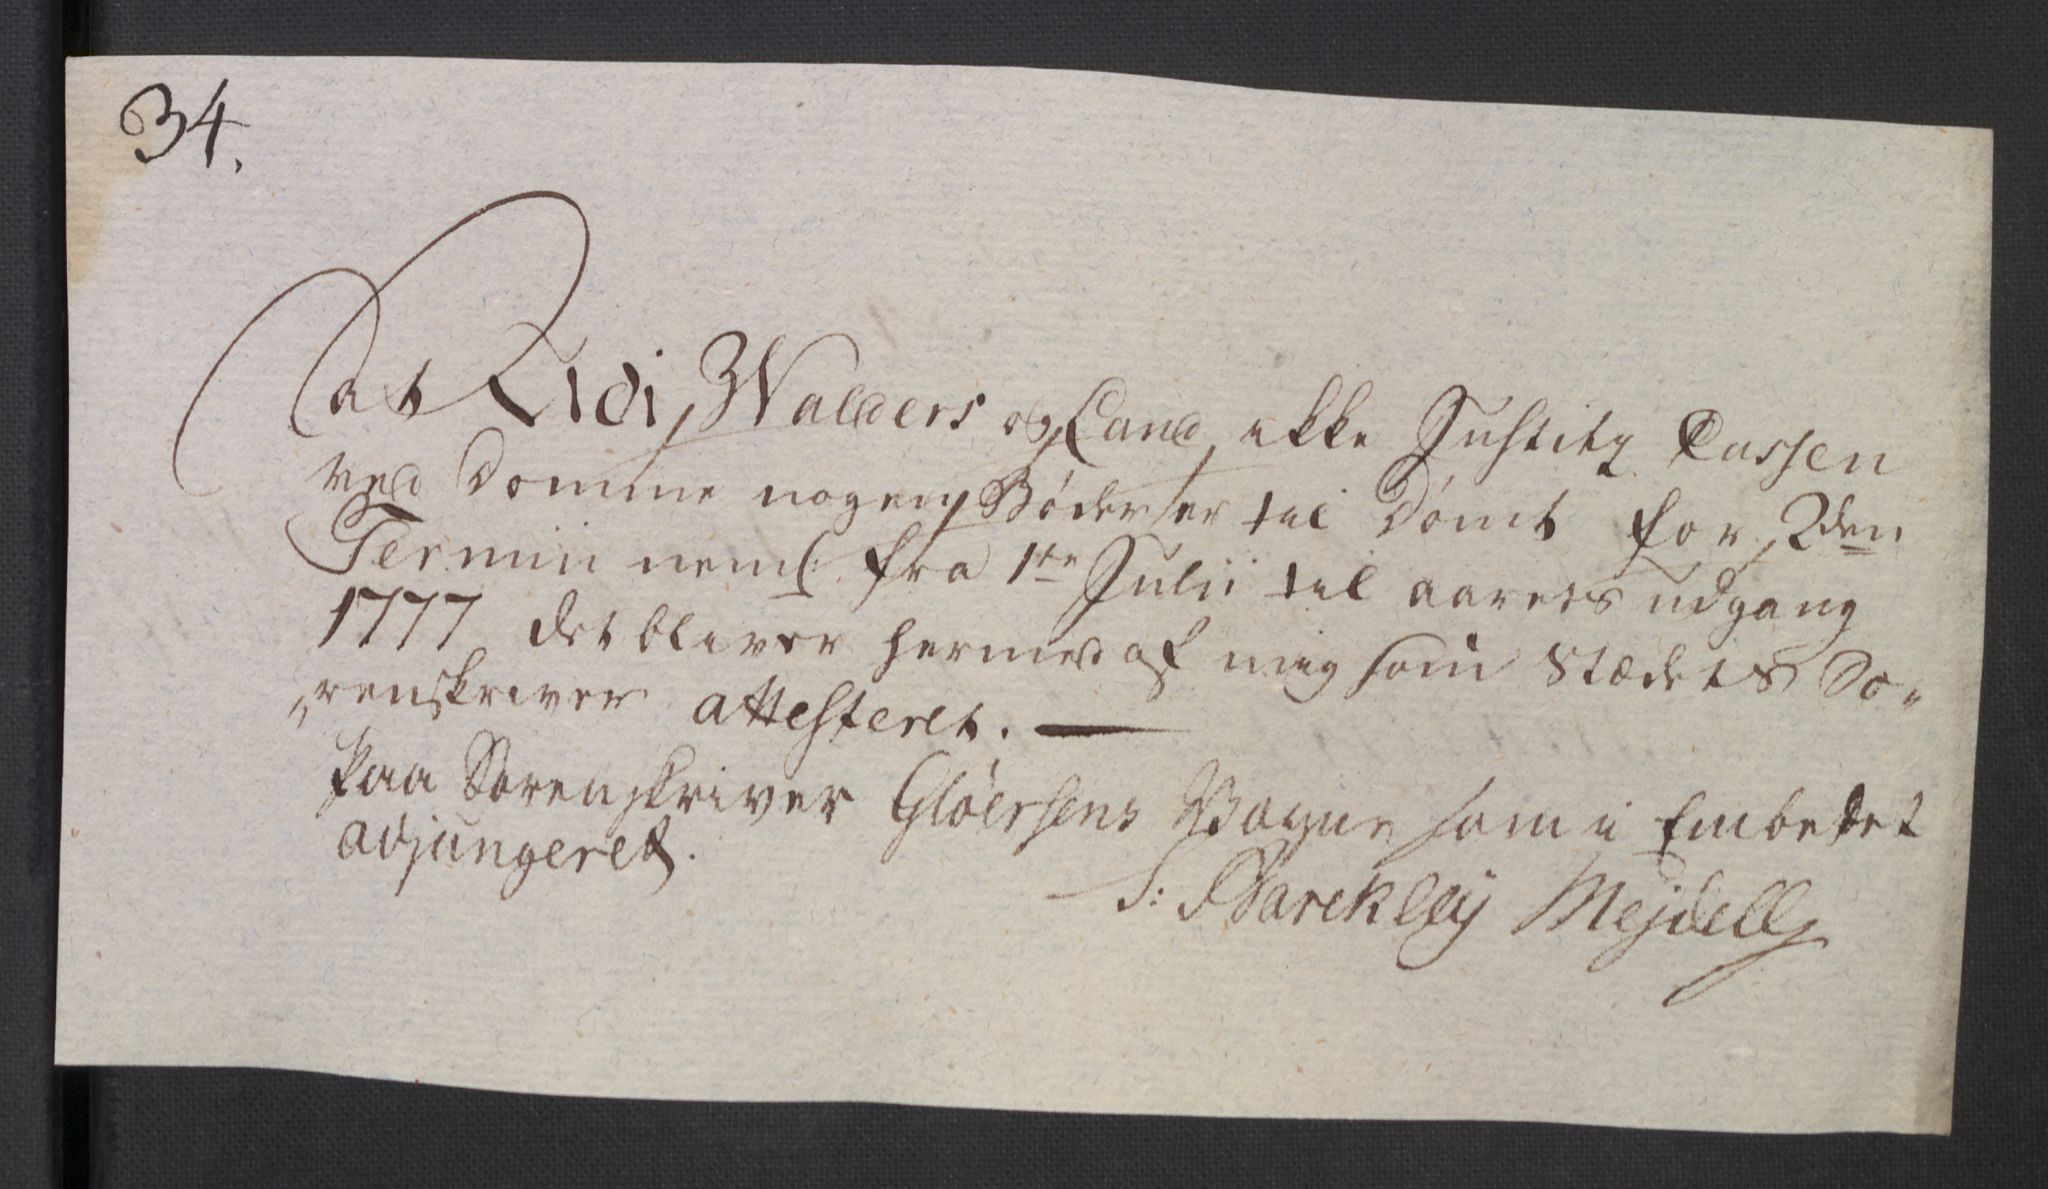 34.
At udi Walders og Land ikke Justitz Cassen
ved Domme nogen Bøder er til Dømt for 2den
Termin neml: fra 1te Julii til aarets udgang
1777 det bliver hermed af mig som Stædets So-
renskriver attesteret. —
Paa Sorenskriver Gløersens Vegne som i Embedet
adjungeret.
S: Barckleij Mejdell